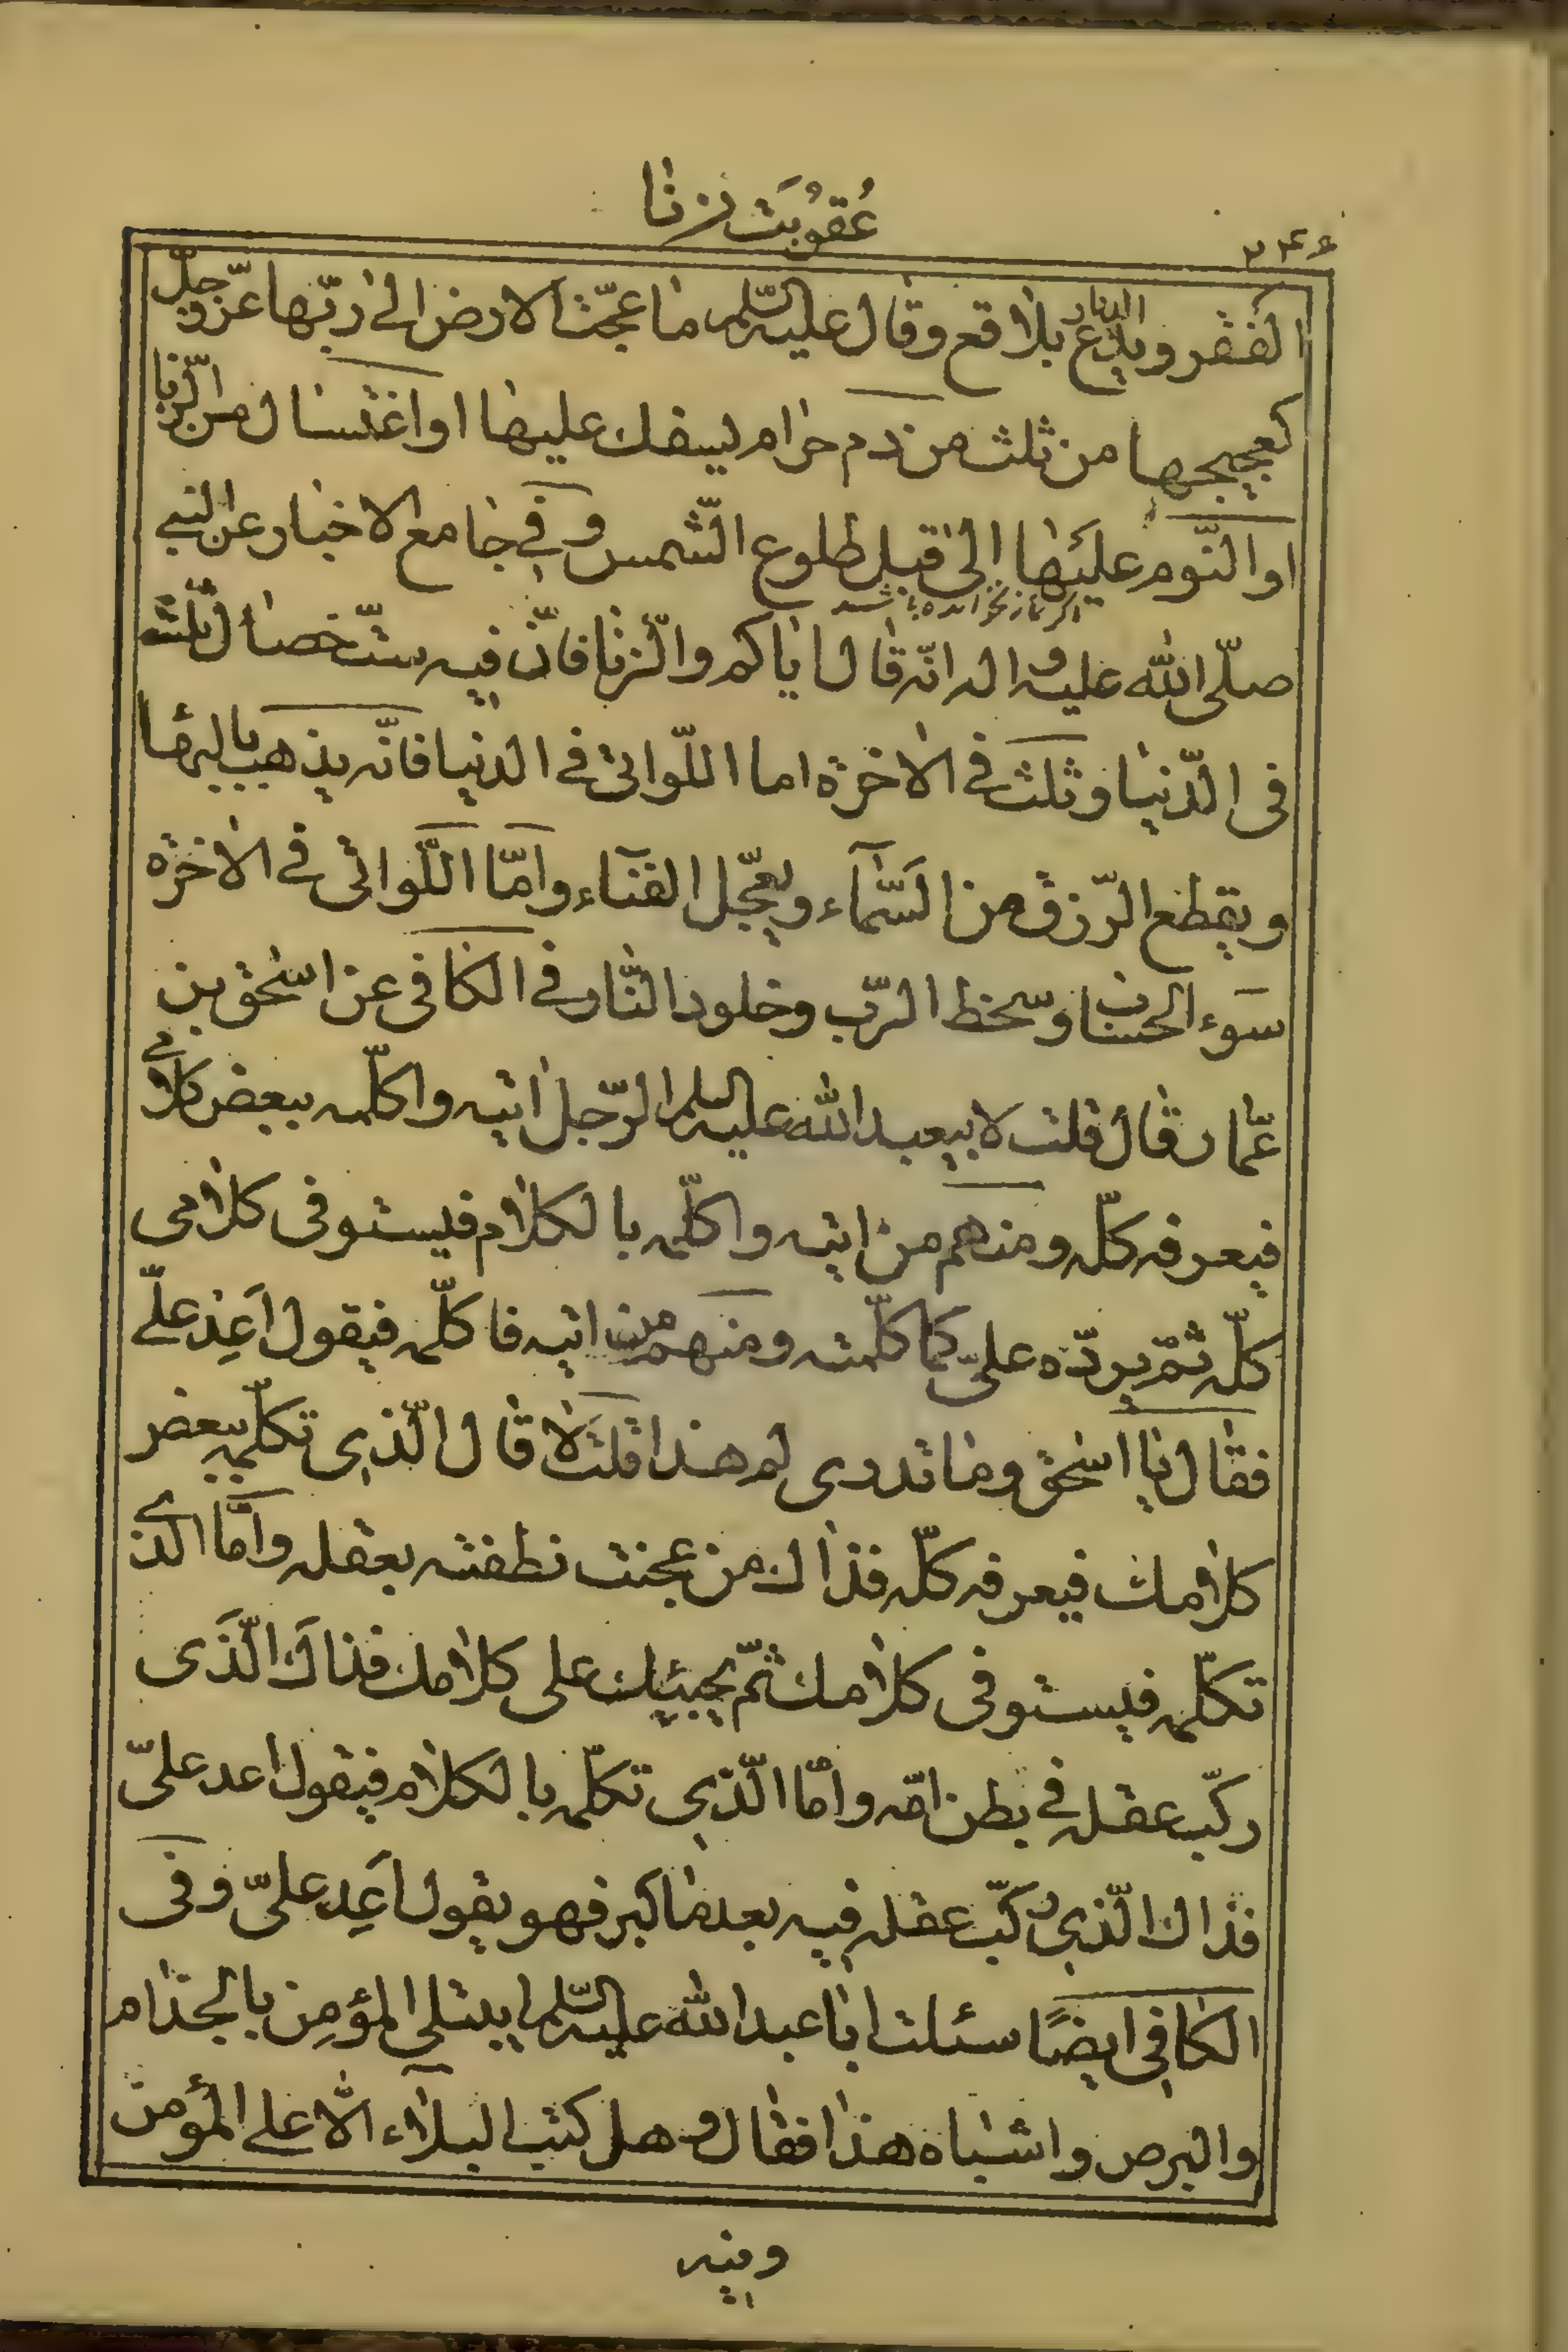 عُقوُبَت زنا
۲۴۶
الفقر و يدع الديار بلاقع و قال عليه السّلم ما عجّت الارض الى ربّها عزّ و جلّ
كعجيجها من ثلث من دم حرام يسفك عليها او اغتسال من الزنا
او النّوم عليَها الى قبل طلوع الشّمس و في جامع الاخبار عن النبي
اكر نماز نخوانده باشد
صلّى الله عليه و اله انّه قال اياكم و الزّنا فانّ فيه ستّ خصال ثلث
فى الدّنيا و ثلث في الاخرة اما اللّواتى في الدنيا فانّه يذهب بالبهآ
و يقطع الرّزق من السّمآء و يعجّل الفنآء و امّا اللّواتى في الاخرة
سوء الحساب و سخط الرّب و خلود النّار في الكافى عن اسحٰق بن
عمّار قال قلت لابيعبد الله عليه السلم الرّجل اتيه و اكلّمه ببعض كلامي
فيعرفه كلّه و منهم من اتيه و اكلّمه بالكلام فيستوفى كلامى
كلّه ثمّ يردّه علىّ كما كلّمته و منهم من اتيه فاكلّمه فيقول اَعِد علىّ
فقال يا اسحٰق و ما تدرى لم هذا قلت لا قال الّذى تكلّمه ببعض
كلامك فيعرفه كلّه فذاك من عجنت نطفته بعقله و امّا الّذي
تكلّمه فيستوفى كلامك ثمّ يجيبك على كلامك فذاك الّذى
ركّب عقله في بطن امّه و امّا الّذى تكلّمه بالكلام فيقول اعد علىّ
فذاك الّذى ركّب عقله فيه بعد ما كبر فهو يقول اَعِد علىّ و فى
الكافى ايضًا سئلت ابا عبد الله عليه السّلم ايبتلى المؤمِن بالجذام
و البرص و اشباه هذا فقال و هل كتب البلآء الّا على المؤمن
و فيه